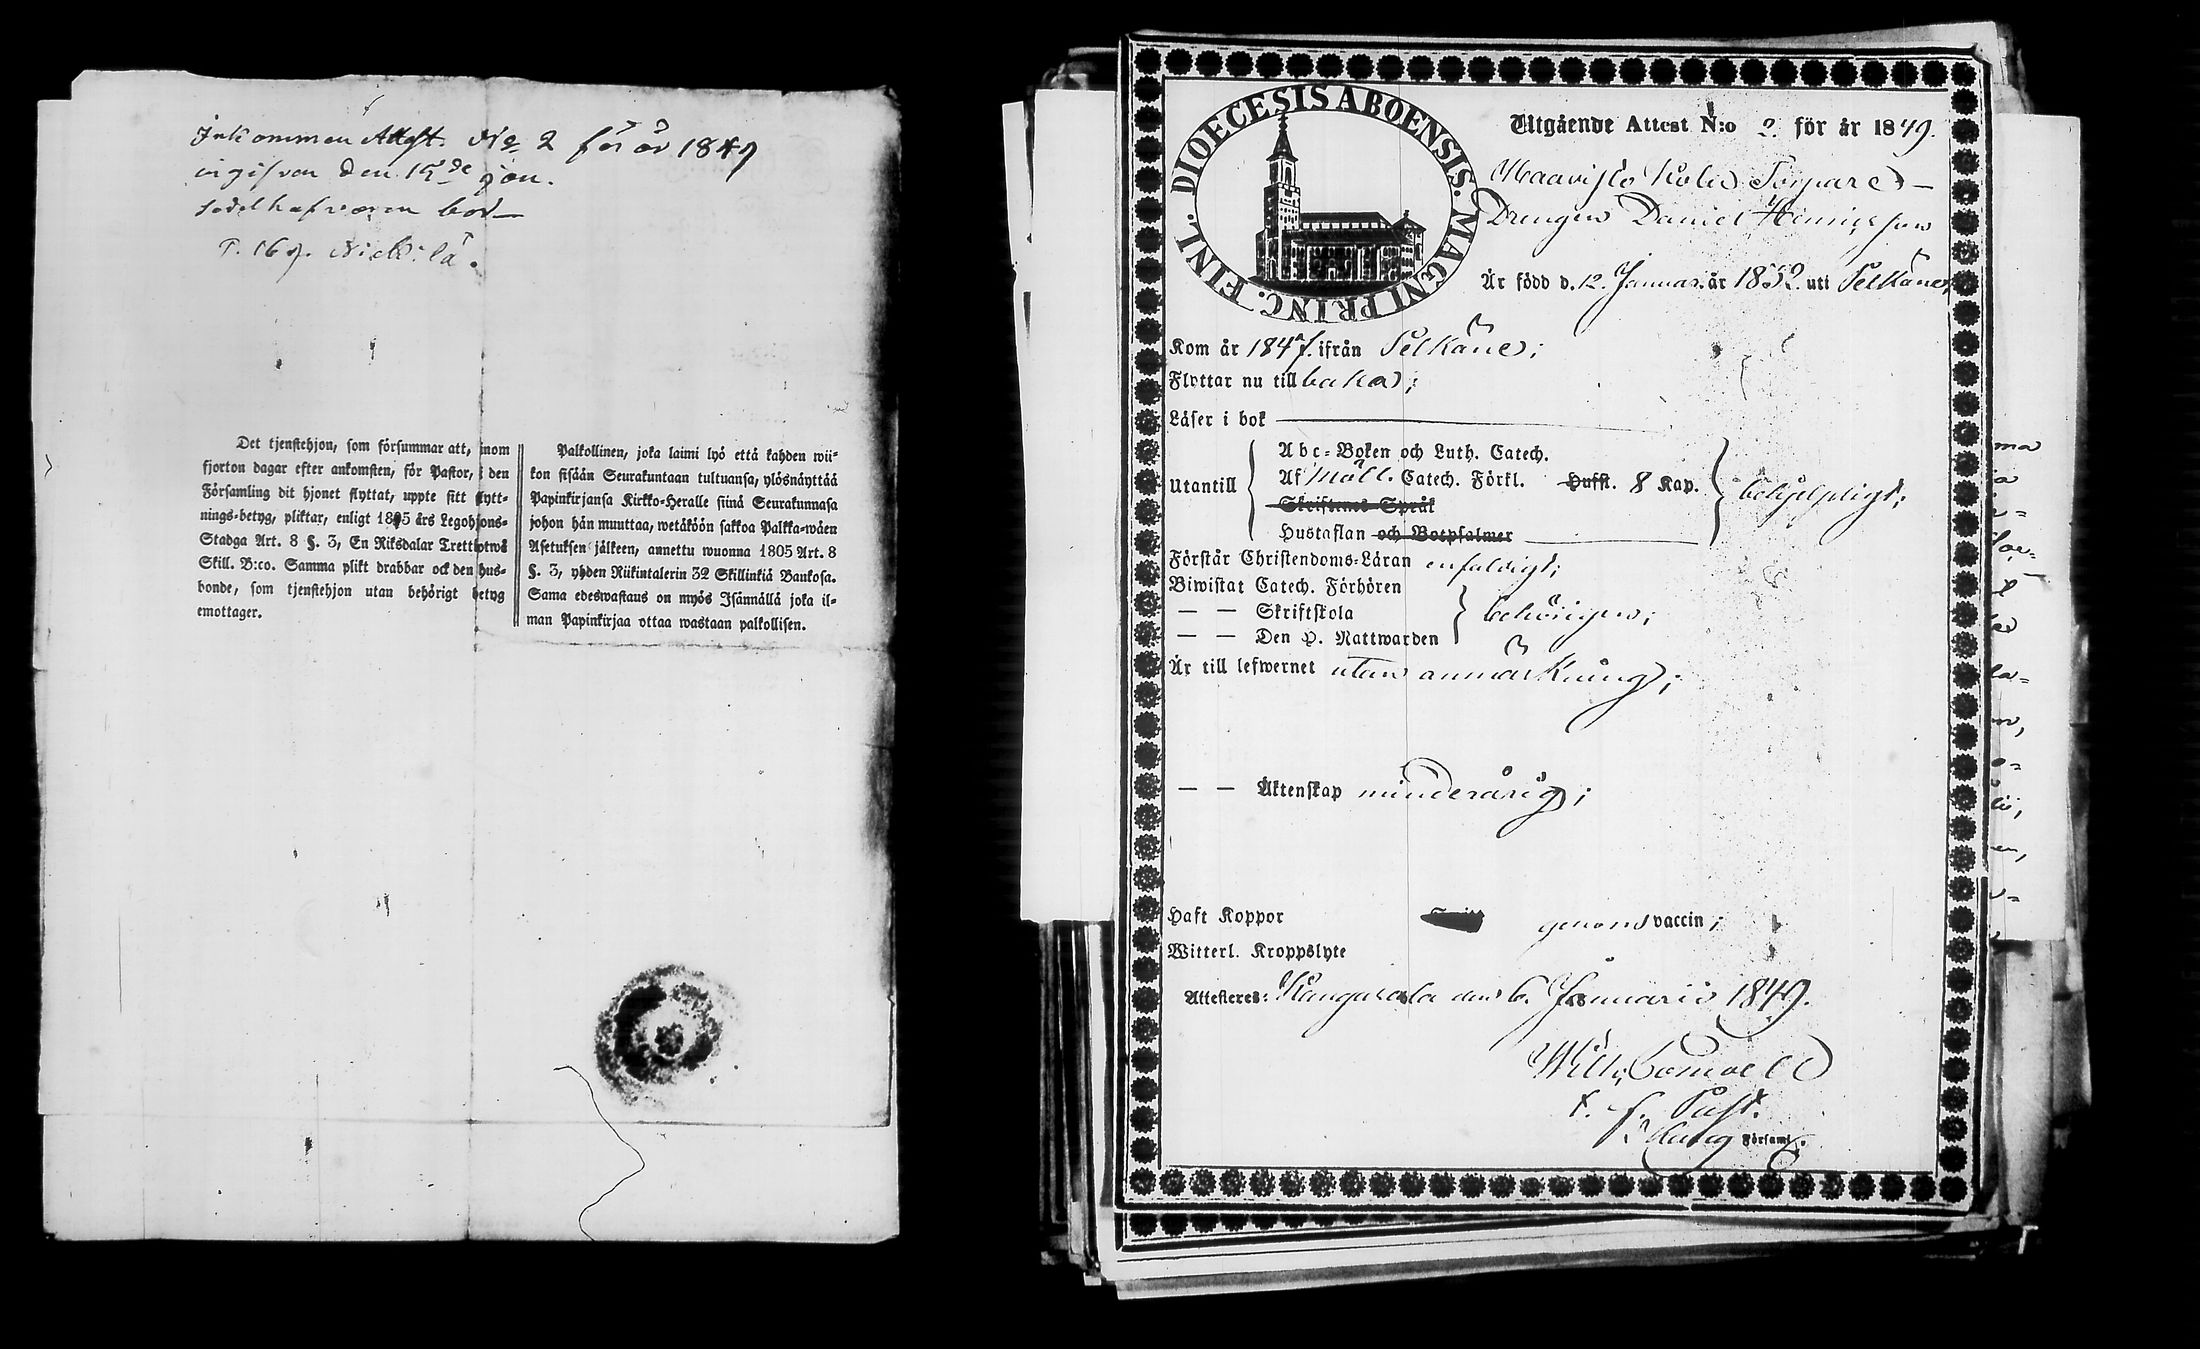 Inkommen Attest No 2 för år 1849
ingifven den 15de Jan.
P. 169. Nickilä.
Det tjenstehjon, som försummar att, inom
fjorton dagar efter ankomsten, för Pastor, i den
Församling dit hjonet flyttat, uppte sitt flytt-
nings-betyg, pliktar, enligt 1805 års Legohjons-
Stadga Art. 8 §. 3, En Riksdalar Trettiotwå
Skill. B:co. Samma plikt drabbar ock den hus-
bonde, som tjenstehjon utan behörigt betyg
emottager.
Palkollinen, joka laimi lyö että kahden wii-
kon sisään Seurakuntaan tultuansa, ylösnäyttää
Papinkirjansa Kirkko-Heralle siinä Seurakunnasa
johon hän muuttaa, wetäköön sakkoa Palkka-wäen
Asetuksen jälkeen, annettu wuonna 1805 Art. 8
§. 3, yhden Riikintalerin 32 Skillinkiä Bankosa.
Sama edeswastaus on myös Isännällä joka il-
man Papinkirjaa ottaa wastaan palkollisen.
DIOECESIS ABOENSIS. MAGNI PRINC. FINL.
Utgående Attest N:o 2. för år 1849.
Maavisto Torpare
Drengen Daniel Henricsson
Är född d. 12. Januar. år 1832. uti Pelkäne,
Kom år 184 ifrån Pelkäne;
Flyttar nu till baka;
Läser i bok
Utantill
Abc-Boken och Luth. Catech.
Af Möll. Catech. Förkl. Hufst. 8 Kap.
Skriftenes Språk
Hustaflan och Botpsalmer
behjelpligt;
Förstår Christendoms-Läran enfaldigt;
Biwistat Catech. Förhören
— — Skriftskola
— — Den H. Nattwarden
behörigen;
Är till lefwernet utan anmärkning;
— — Äktenskap minderårig;
Haft Koppor genom vaccin;
Witterl. Kroppslyte
Attesteres: Kangasala den 6. Januarii 1849.
t. f. Past.
i Kang Förfaml.